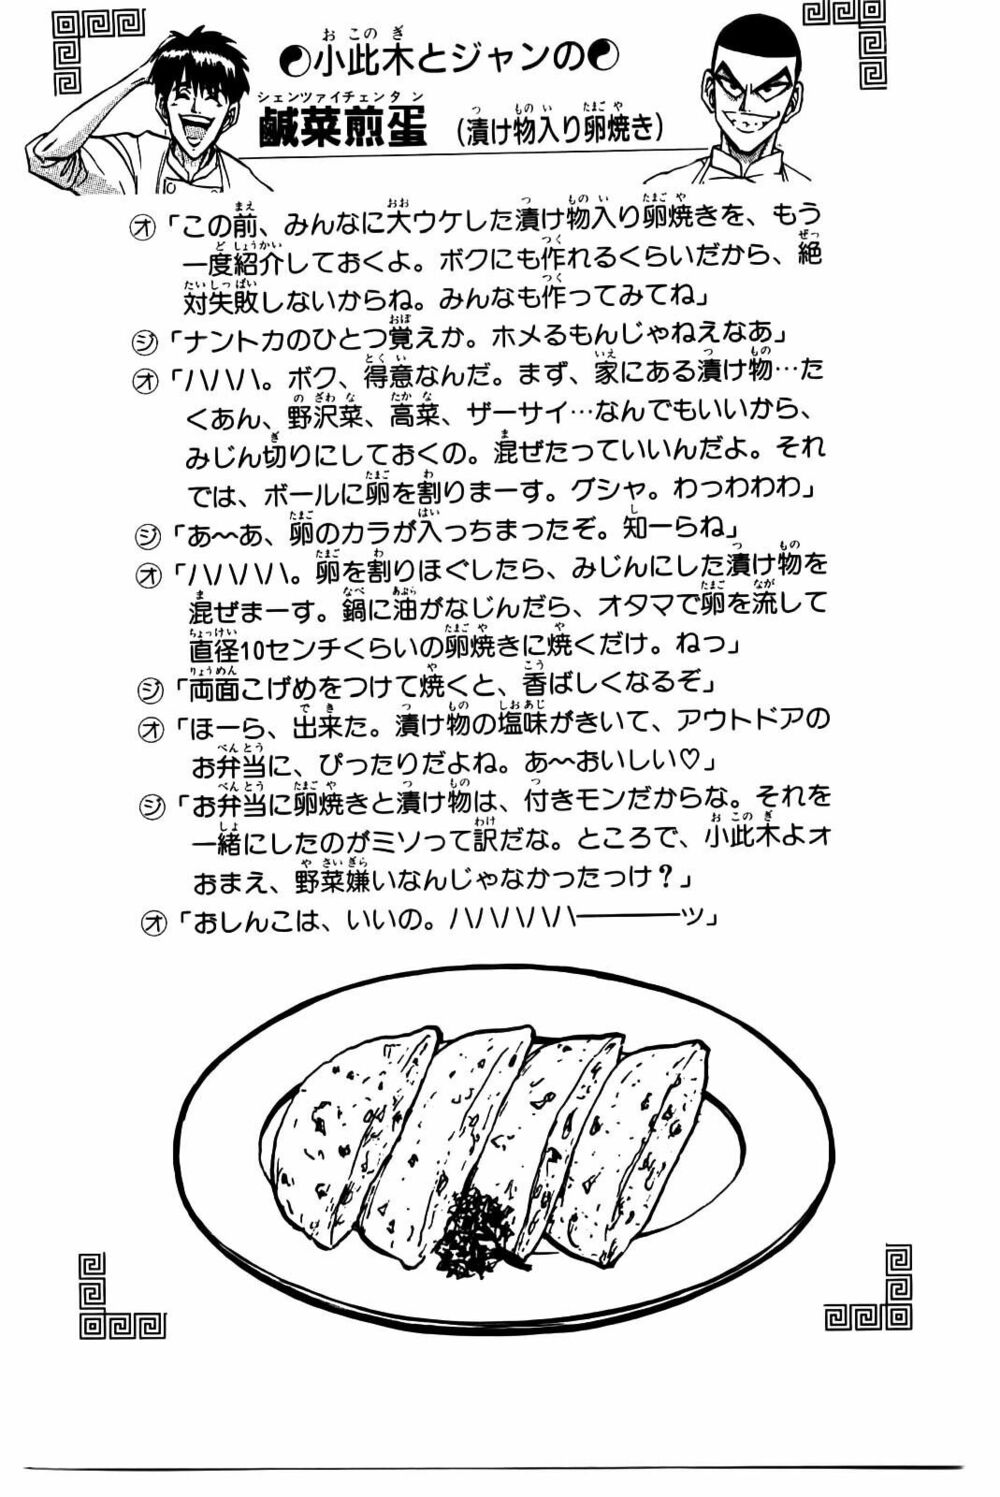 小此木とジャンの
鹹菜煎蛋（漬け物入り卵焼き）
オ「この前、みんなに大ウケした漬け物入り卵焼きを、もう
一度紹介しておくよ。ボクにも作れるくらいだから、絶
対失敗しないからね。みんなも作ってみてね」
ジ「ナントカのひとつ覚えか。ホメるもんじゃねえなあ」
オ「ハハハ。ボク、得意なんだ。まず、家にある漬け物…た
くあん、野沢菜、高菜、ザーサイ…なんでもいいから、
みじん切りにしておくの。混ぜたっていいんだよ。それ
では、ボールに卵を割りまーす。グシャ。わっわわわ」
ジ「あ〜あ、卵のカラが入っちまったぞ。知ーらね」
オ「ハハハハ。卵を割りほぐしたら、みじんにした漬け物を
混ぜまーす。鍋に油がなじんだら、オタマで卵を流して
直径10センチくらいの卵焼きに焼くだけ。ねっ」
ジ「両面こげめをつけて焼くと、香ばしくなるぞ」
オ「ほーら、出来た。漬け物の塩味がきいて、アウトドアの
お弁当に、ぴったりだよね。あ〜おいしい♡」
ジ「お弁当に卵焼きと漬け物は、付きモンだからな。それを
一緒にしたのがミソって訳だな。ところで、小此木よォ
おまえ、野菜嫌いなんじゃなかったっけ？」
オ「おしんこは、いいの。ハハハハハ――――ッ」